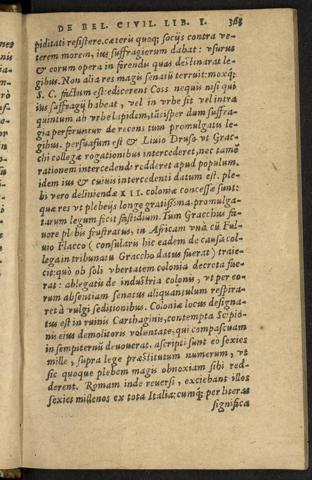 DE BEL. CIVIL. LIB. I. 363
piditati resistere. cæterū quoq; socijs contra ve-
terem morem, ius suffragiorum dabat: vsurus
& eorum opera in ferendis quas destinarat le-
gibus. Non alia res magis senatū terruit: moxq;
S. C. factum est: edicerent Coss. nequis nisi qui
ius suffragij habeat, vel in vrbe sit vel intra
quintum ab vrbe lapidem, tātisper dum suffra-
gia perferuntur de recens tum promulgatis le-
gibus. persuasum est & Liuio Druso vt Grac-
chi collegæ rogationibus intercederet, nec tamē
rationem intercedendi redderet apud populum.
idem ius & cuiuis intercedenti datum est. ple-
bi vero deliniendæ XII. coloniæ concessæ sunt:
quæ res vt plebeijs longe gratissima. promulga-
tarum legum fecit fastidium. Tum Gracchus fa-
uore plebis frustratus, in Africam vnà cū Ful-
uio Flacco (consularis hic eadem de causa col-
lega in tribunatu Graccho datus fuerat) traie-
cit: quò ob soli vbertatem colonia decreta fue-
rat: ablegatis de industria colonis, vt per eo-
rum absentiam senatus aliquantulum respira-
ret à vulgi seditionibus. Coloniæ locus designa-
tus est in ruinis Carthaginis, contempta Scipio-
nis eius demolitoris voluntate, qui compascuam
in sempiternū deuouerat. ascripti sunt eo sexies
mille, supra lege præstitutum numerum, vt
sic quoque plebem magis obnoxiam sibi red-
derent. Romam inde reuersi, exciebant illos
sexies millenos ex tota Italia: cumq; per literas
significa